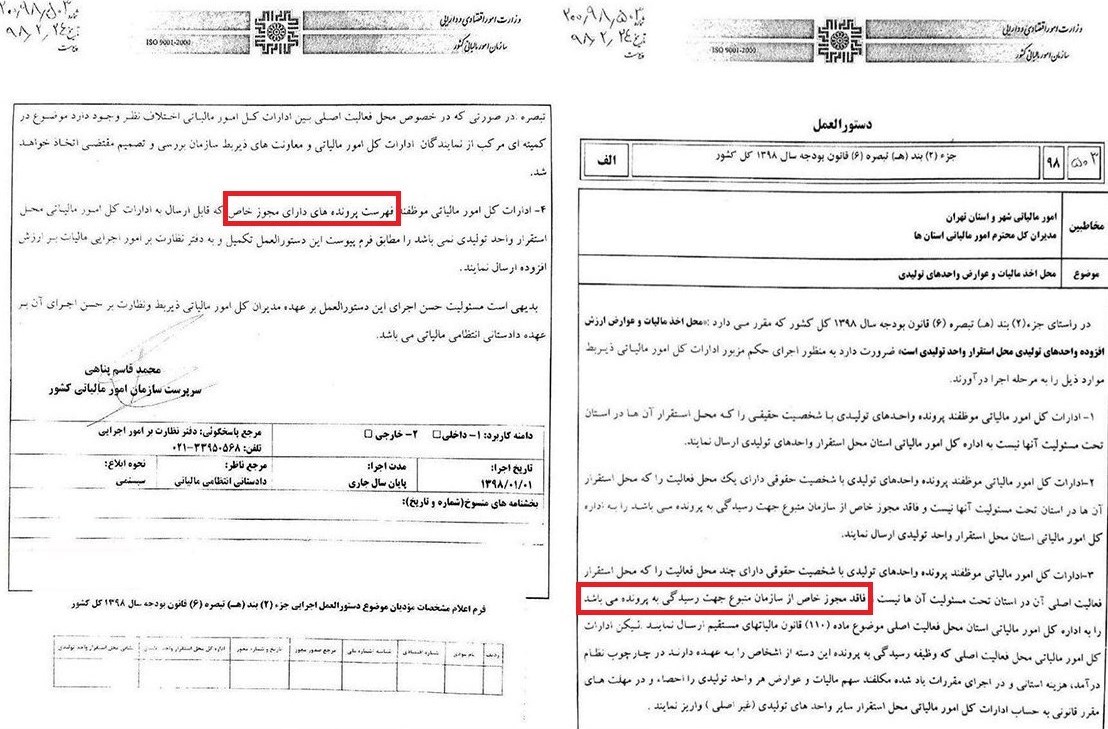 وزارت امور اقتصادی و دارایی
سازمان امور مالیاتی کشور
ISO 9001-2000
شماره ۲۰۰/۹۸/۵۰۳
تاریخ ۹۸/۲/۲۴
پیوست
دستورالعمل
۵۰۳
۹۸
جزء (۲) بند (هـ) تبصره (۶) قانون بودجه سال ۱۳۹۸ کل کشور
الف
مخاطبین
امور مالیاتی شهر و استان تهران
مدیران کل محترم امور مالیاتی استان ها
موضوع
محل اخذ مالیات و عوارض واحدهای تولیدی
در راستای جزء(۲) بند (هـ) تبصره (۶) قانون بودجه سال ۱۳۹۸ کل کشور که مقرر می دارد :«محل اخذ مالیات و عوارض ارزش
افزوده واحدهای تولیدی محل استقرار واحد تولیدی است» ضرورت دارد به منظور اجرای حکم مزبور ادارات کل امور مالیاتی ذیربط
موارد ذیل را به مرحله اجرا درآورند.
۱- ادارات کل امور مالیاتی موظفند پرونده واحدهای تولیدی با شخصیت حقیقی را که محل استقرار آن ها در استان
تحت مسئولیت آنها نیست به اداره کل امور مالیاتی استان محل استقرار واحدهای تولیدی ارسال نمایند.
۲-ادارات کل امور مالیاتی موظفند پرونده واحدهای تولیدی با شخصیت حقوقی دارای یک محل فعالیت را که محل استقرار
آن ها در استان تحت مسئولیت آنها نیست و فاقد مجوز خاص از سازمان متبوع جهت رسیدگی به پرونده می باشد را به اداره
کل امور مالیاتی استان محل استقرار واحد تولیدی ارسال نمایند.
۳-ادارات کل امور مالیاتی موظفند پرونده واحدهای تولیدی با شخصیت حقوقی دارای چند محل فعالیت را که محل استقرار
فعالیت اصلی آن در استان تحت مسئولیت آن ها نیست فاقد مجوز خاص از سازمان متبوع جهت رسیدگی به پرونده می باشد
را به اداره کل امور مالیاتی استان محل فعالیت اصلی موضوع ماده (۱۱۰) قانون مالیاتهای مستقیم ارسال نمایند .لیکن ادارات
کل امور مالیاتی محل فعالیت اصلی که وظیفه رسیدگی به پرونده این دسته از اشخاص را به عهده دارند در چارچوب نظام
درآمد، هزینه استانی و در اجرای مقررات یاد شده مکلفند سهم مالیات و عوارض هر واحد تولیدی را احصاء و در مهلت های
مقرر قانونی به حساب ادارات کل امور مالیاتی محل استقرار سایر واحد های تولیدی (غیر اصلی ) واریز نمایند .
وزارت امور اقتصادی و دارایی
سازمان امور مالیاتی کشور
ISO 9001-2000
شماره ۲۰۰/۹۸/۵۰۳
تاریخ ۹۸/۲/۲۴
پیوست
تبصره :در صورتی که در خصوص محل فعالیت اصلی بین ادارات کل امور مالیاتی اختلاف نظر وجود دارد موضوع در
کمیته ای مرکب از نمایندگان ادارات کل امور مالیاتی و معاونت های ذیربط سازمان بررسی و تصمیم مقتضی اتخاذ خواهد
شد.
۴- ادارات کل امور مالیاتی موظفند فهرست پرونده های دارای مجوز خاص که قابل ارسال به ادارات کل امور مالیاتی محل
استقرار واحد تولیدی نمی باشد را مطابق فرم پیوست این دستورالعمل تکمیل و به دفتر نظارت بر امور اجرایی مالیات بر ارزش
افزوده ارسال نمایند .
بدیهی است مسئولیت حسن اجرای این دستورالعمل بر عهده مدیران کل امور مالیاتی ذیربط ونظارت بر حسن اجرای آن بر
عهده دادستانی انتظامی مالیاتی می باشد.
محمد قاسم پناهی
سرپرست سازمان امور مالیاتی کشور
دامنه کاربرد: ۱- داخلی ۲- خارجی
مرجع پاسخگوئی: دفتر نظارت بر امور اجرایی
تلفن: ۳۳۹۵۰۵۶۸-۰۲۱
تاریخ اجرا: ۱۳۹۸/۰۱/۰۱
مدت اجرا: پایان سال جاری
مرجع ناظر: دادستانی انتظامی مالیاتی
نحوه ابلاغ: سیستمی
بخشنامه های منسوخ(شماره و تاریخ):
فرم اعلام مشخصات مؤدیان موضوع دستورالعمل اجرایی جزء (۲) بند (هـ) تبصره (۶) قانون بودجه سال ۱۳۹۸ کل کشور
ردیف
نام مودی
شماره اقتصادی
شناسه /شماره ملی
مرجع صدور مجوز
تاریخ و شماره مجوز
اداره کل محل استقرار واحد
نشانی محل استقرار واحد تولیدی